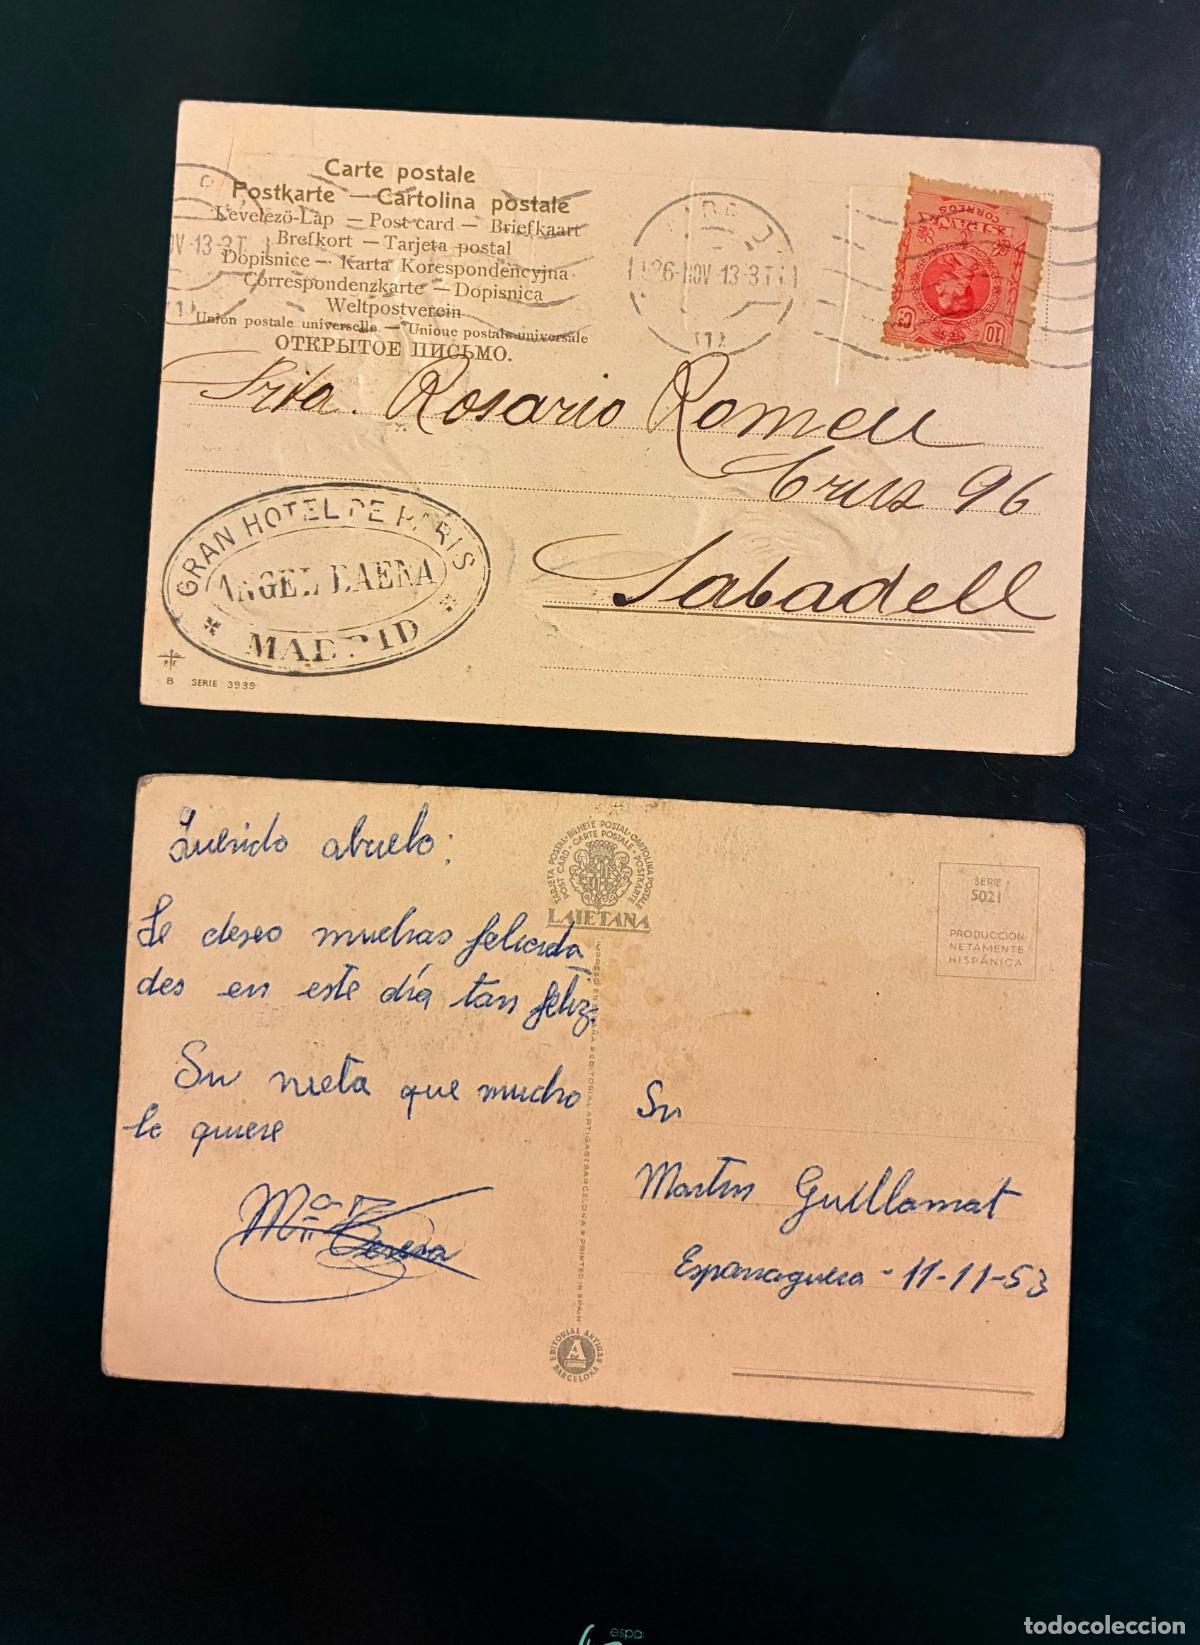 Carte postale
Postkarte — Cartolina postale
Levelező-Lap — Post card — Briefkaart
Brefkort — Tarjeta postal
Dopisnice — Karta Korespondencyjna
Correspondenzkarte — Dopisnica
Weltpostverein
Union postale universelle — Unione postale universale
ОТКРЫТОЕ ПИСЬМО.
26-NOV-13-3T
OV-13-3T
CORREOS
ESPAÑA
10 Cs
Srta. Rosario Romeu
Cruz 96
Sabadell
GRAN HOTEL DE PARIS
ANGEL BAENA
MADRID
B SERIE 3939
Querido abuelo:
Le deseo muchas felicida
des en este día tan feliz.
Su nieta que mucho
le quiere
Mª Teresa
TARJETA POSTAL·BILHETE POSTAL·CARTOLINA POSTALE
POST CARD·CARTE POSTALE·POSTKARTE
LAIETANA
SERIE
5021
PRODUCCION
NETAMENTE
HISPÁNICA
IMPRESO EN ESPAÑA EDITORIAL ARTIGAS BARCELONA PRINTED IN SPAIN
Sr
Martin Guillamat
Esparraguera - 11-11-53
EDITORIAL ARTIGAS
A
BARCELONA
espai
todocoleccion